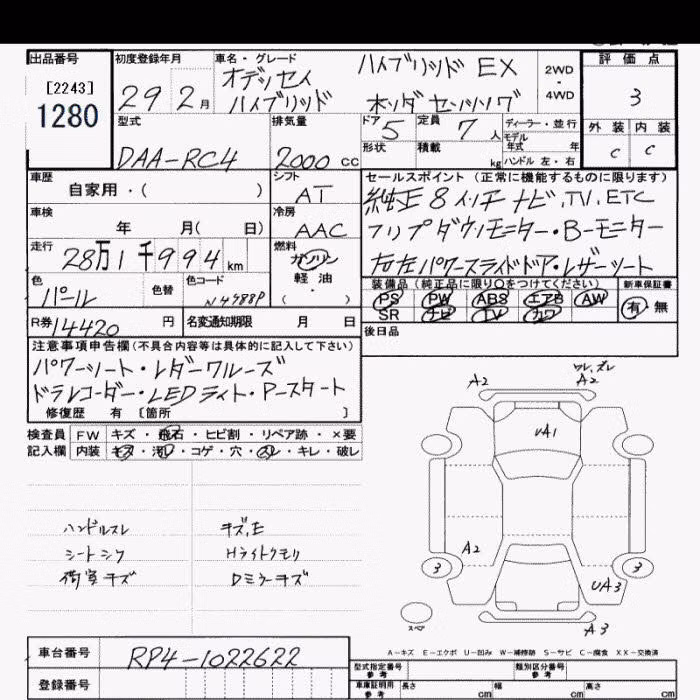 出品番号
[2243]
1280
初度登録年月
29 2月
車名・グレード
オデッセイ ハイブリッド EX
ハイブリッド ホンダセンシング
2WD
・
4WD
評価点
3
外装 内装
C C
型式
DAA-RC4
排気量
2000 cc
ドア 5
定員 7人
形状
積載 kg
ディーラー・並行
モデル年式 年
ハンドル 左・右
車歴
自家用・( )
シフト
AT
セールスポイント(正常に機能するものに限ります)
純正8インチナビ、TV、ETC
フリップダウンモニター・Bーモニター
右左パワースライドドア・レザーシート
車検
年 月( 日)
冷房
AAC
走行
28万1千994km
燃料
ガソリン
軽油
( ・ )
色
パール
色替
色コード
NH788P
装備品(純正品に限り○をつけてください)
PS PW ABS エアB AW
SR ナビ TV カワ
新車保証書
有・無
R券 14420円
名変通知期限 月 日
後日品
注意事項申告欄(不具合内容等は具体的に記入して下さい)
パワーシート・レダークルーズ
ドラレコーダー・LEDライト・Pースタート
修復歴 有 〔箇所 〕
検査員記入欄
FW キズ・飛石・ヒビ割・リペア跡・×要
内装 キズ・汚レ・コゲ・穴・スレ・キレ・破レ
ハンドルスレ キズ、E
シートシワ Hライトクモリ
荷室キズ Dミラーキズ
A2
ワレ、ズレ
A2
UA1
A2
3
3
UA3
A3
スペア
A-キズ E-エクボ U-凹み W-補修跡 S-サビ C-腐食 XX-交換済
車台番号
RP4-1022622
登録番号
型式指定番号 参考
類別区分番号 参考
車庫証明用 参考
長さ cm 幅 cm 高さ cm